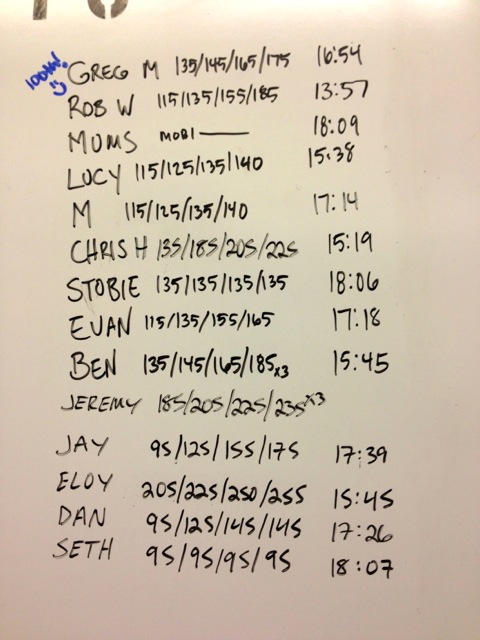 100th!
GREG M 135/145/165/175 16:54
ROB W 115/135/155/185 13:57
MUMS MOBI — 18:09
LUCY 115/125/135/140 15:38
M 115/125/135/140 17:14
CHRIS H 135/185/205/225 15:19
STOBIE 135/135/135/135 18:06
EVAN 115/135/155/165 17:18
BEN 135/145/165/185x3 15:45
JEREMY 185/205/225/235x3
JAY 95/125/155/175 17:39
ELOY 205/225/250/255 15:45
DAN 95/125/145/145 17:26
SETH 95/95/95/95 18:07